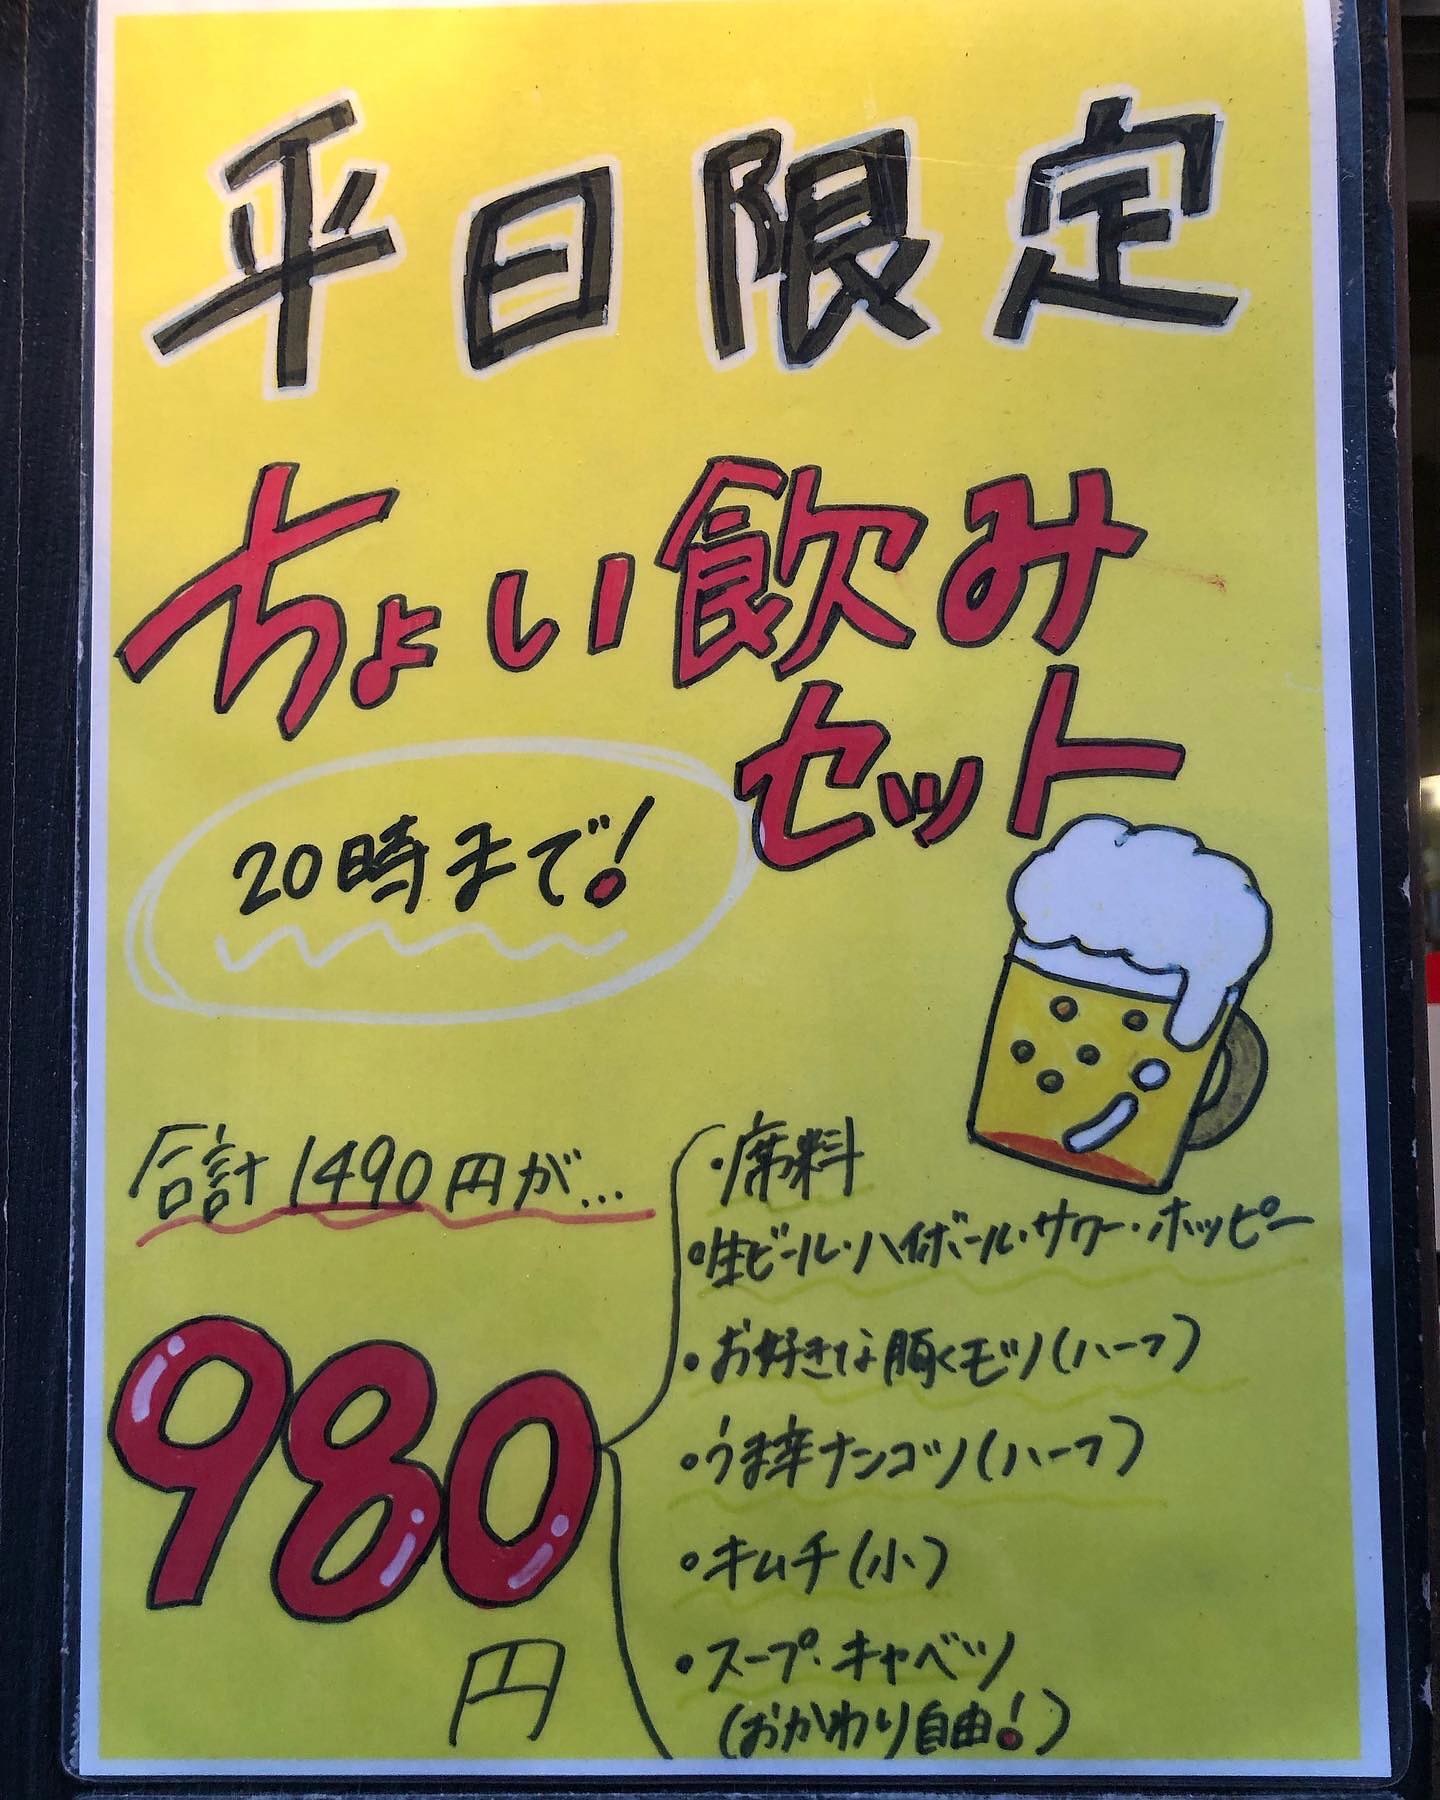 平日限定
ちょい飲み
セット
20時まで!
合計1490円が...
980
円
・席料
・生ビール・ハイボール・サワー・ホッピー
・お好きな豚くモツ(ハーフ)
・うま辛ナンコツ(ハーフ)
・キムチ(小)
・スープ・キャベツ
(おかわり自由!)